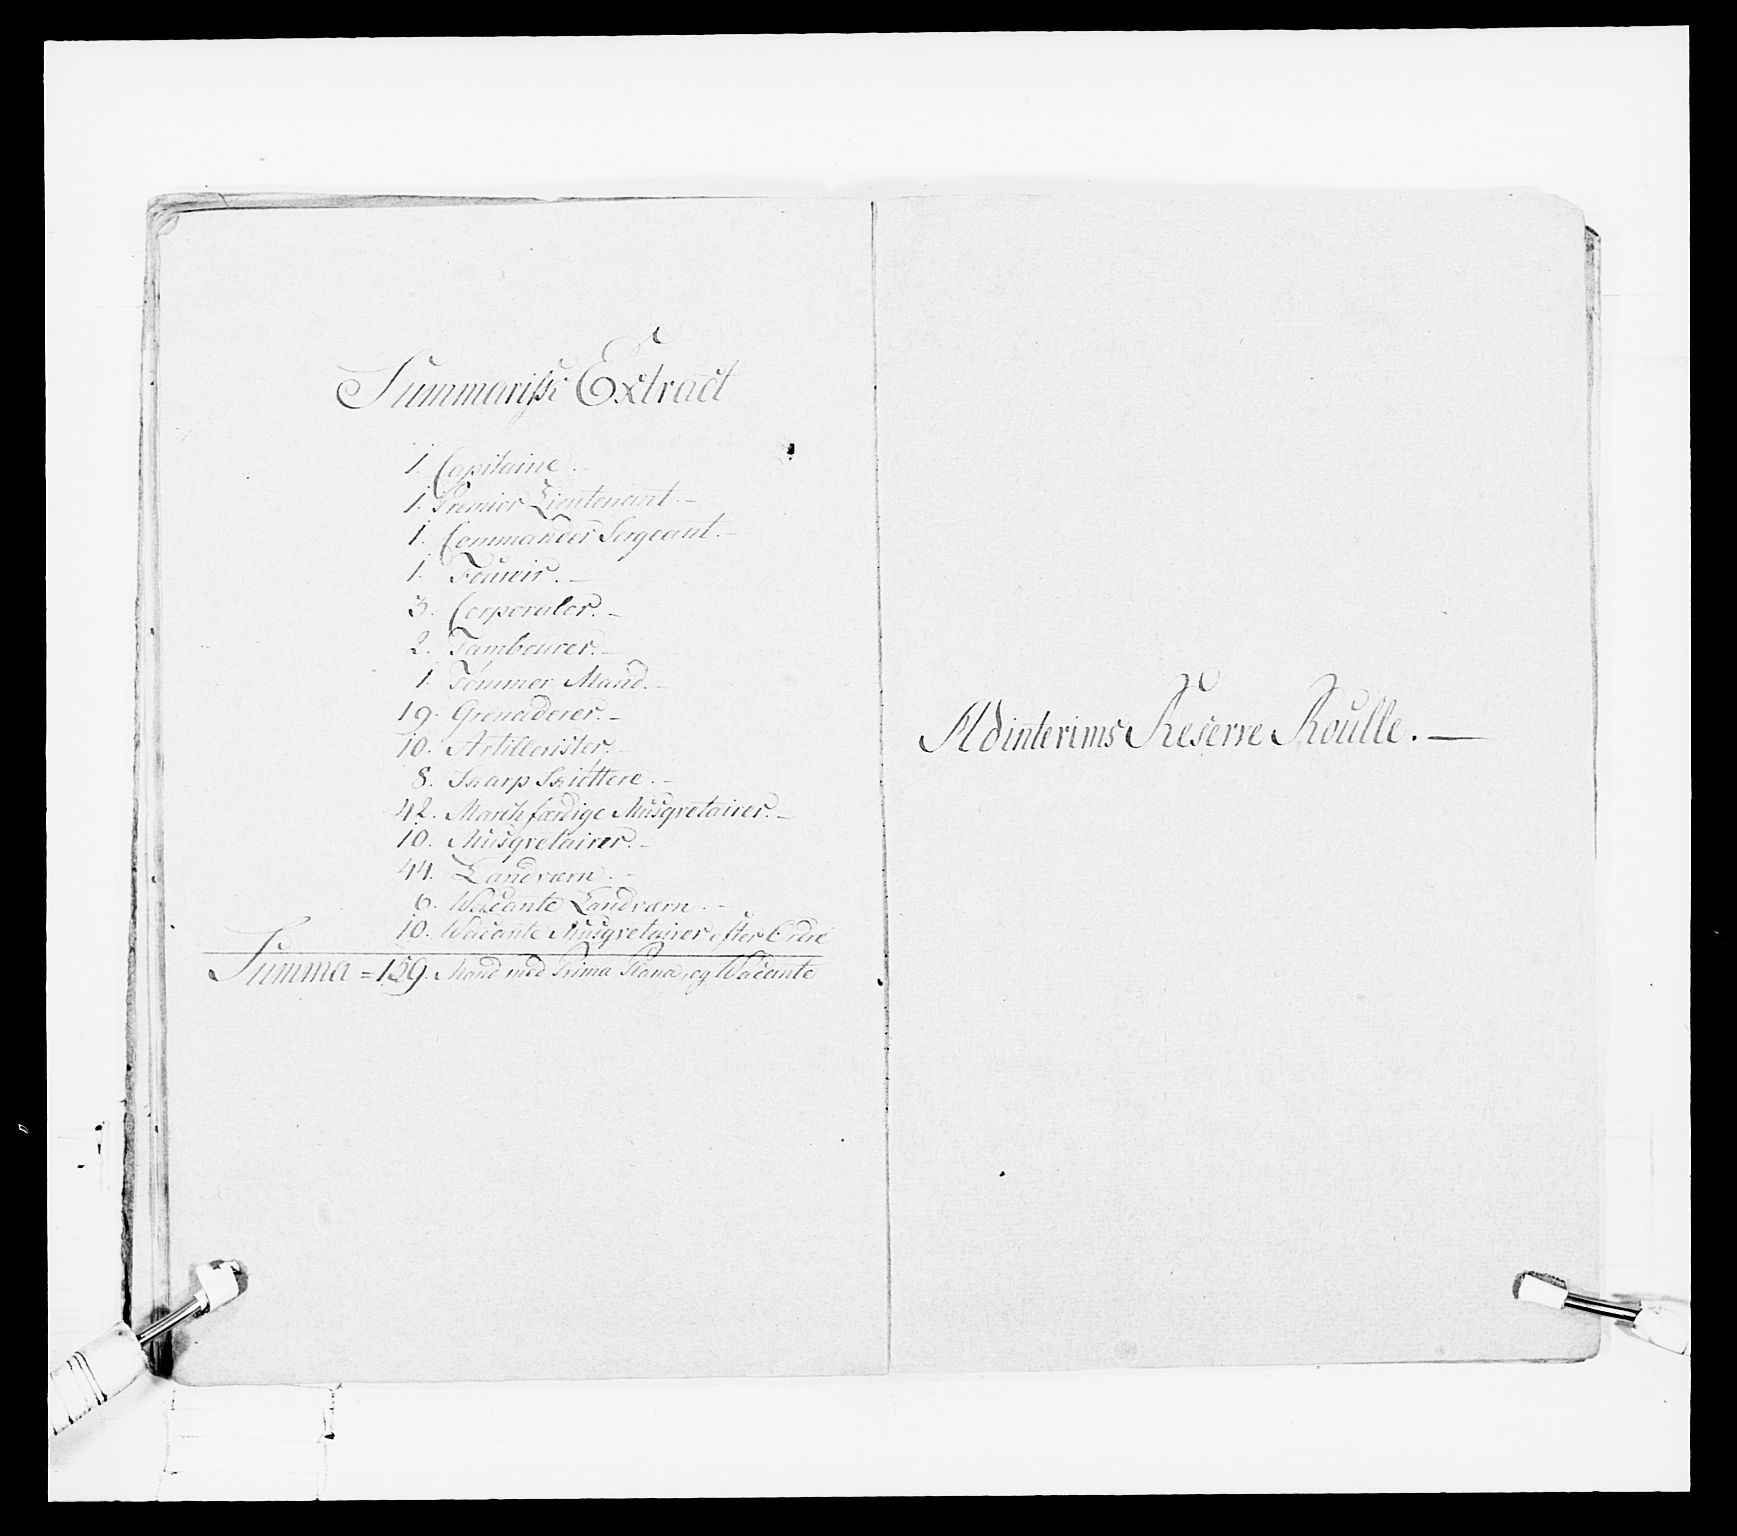 Summarisk Extract
1. Capitaine. -
1. Premier Lieutenant. -
1. Commander Sergeant. -
1. Fourir. -
3. Corporaler. -
2. Tambourer. -
1. Tømmer Mand. -
19. Grenaderer. -
10. Artillerister. -
8. Skarp Skiøttere. -
42. Marchfærdige Musqvetairer. -
10. Musqvetairer. -
44. Landværn. -
6. Wacante Landværn. -
10. Wacante Musqvetairer efter Ordre
Summa = 159. Mand med Prima Plana, og Wacante
Adinterims Reserve Roulle. —